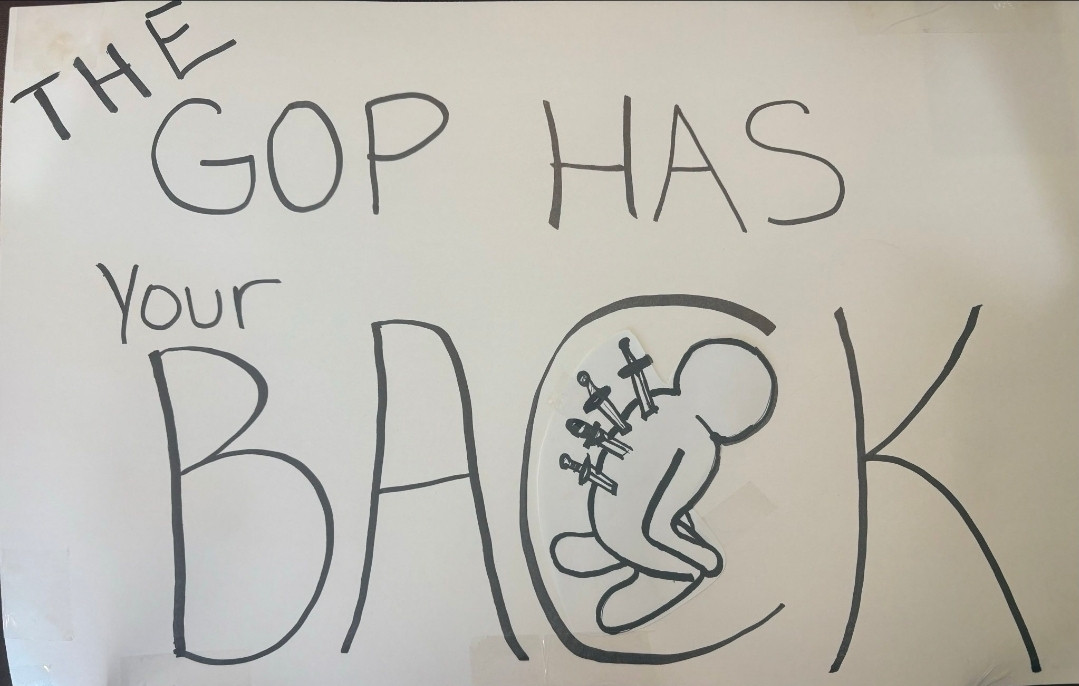 THE
GOP HAS
Your
BACK